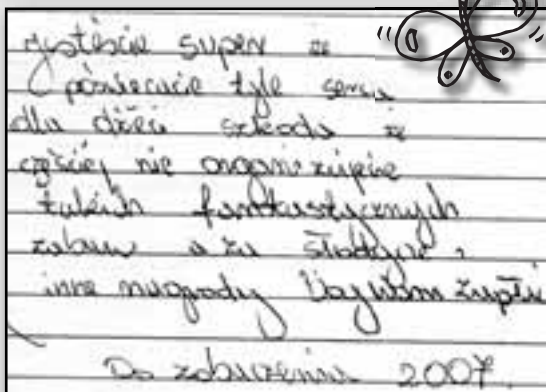 jesteście super że
poświęcacie tyle serca
dla dzieci szkoda że
częściej nie organizujecie
takich fantastycznych
zabaw a za słodycze i
inne nagrody
Do zobaczenia 2007